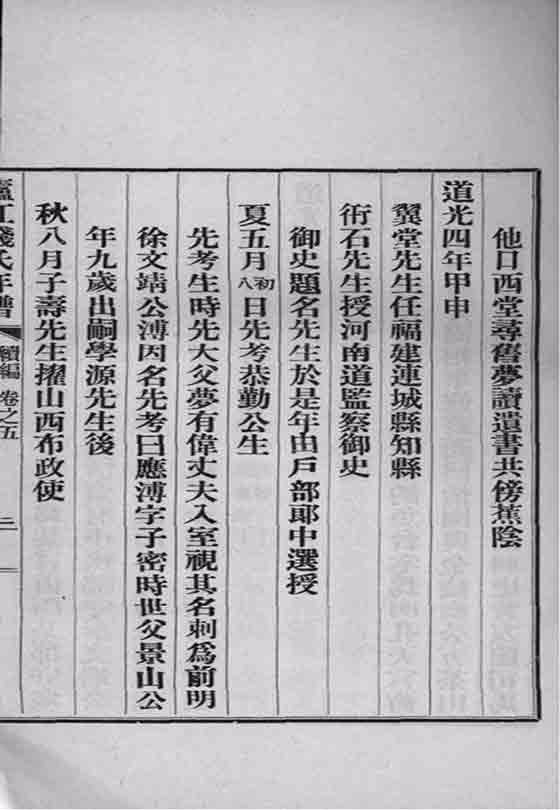 他日西堂尋舊夢讀遺書共傍蕉陰
道光四年甲申
翼堂先生任福建連城縣知縣
衎石先生授河南道監察御史
御史題名先生於是年由戶部郎中選授
夏五月初八日先考恭勤公生
先考生時先大父夢有偉丈夫入室視其名刺爲前明
徐文靖公溥因名先考曰應溥字子密時世父景山公
年九歲出嗣學源先生後
秋八月子壽先生擢山西布政使
廬江錢氏年譜 續編 卷之五 二